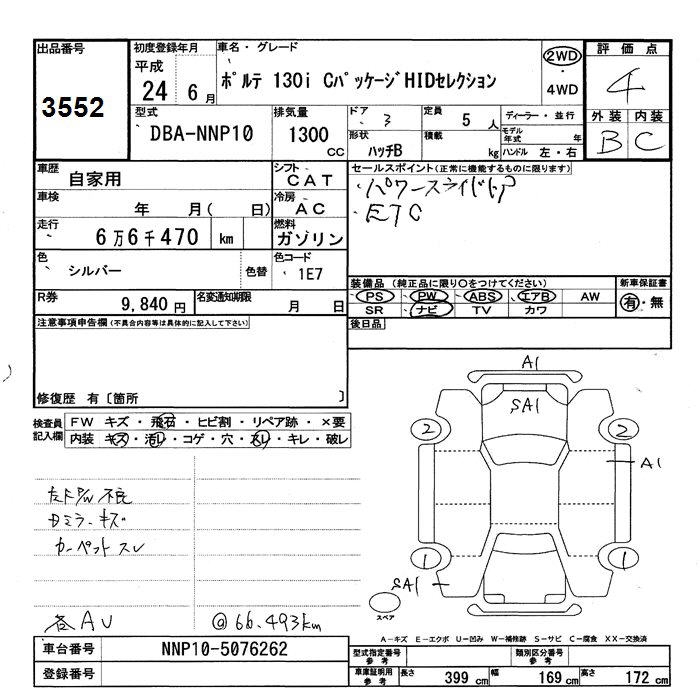 出品番号
3552
初度登録年月
平成
24 6 月
車名・グレード
ポルテ 130i CパッケージHIDセレクション
2WD
・
4WD
評価点
4
外装 内装
B C
型式
DBA-NNP10
排気量
1300
CC
ドア
3
定員
5 人
ディーラー・並行
形状
ハッチB
積載
kg
モデル年式 年
ハンドル 左・右
車歴
自家用
シフト
CAT
車検
年 月( 日)
冷房
AC
走行
6万6千470 km
燃料
ガソリン
色
シルバー
色替
色コード
1E7
R券
9,840 円
名変通知期限
月 日
セールスポイント(正常に機能するものに限ります)
・パワースライドドア
・ETC
装備品(純正品に限り○をつけてください)
PS PW ABS エアB AW
SR ナビ TV カワ
新車保証書
有・無
後日品
注意事項申告欄(不具合内容等は具体的に記入して下さい)
修復歴 有〔箇所 〕
検査員記入欄
FW キズ・飛石・ヒビ割・リペア跡・×要
内装 キズ・汚レ・コゲ・穴・スレ・キレ・破レ
左FP/W不良
カミラーキズ
カーペットスレ
各AU
@66.493km
A1
SA1
2
2
A1
1
1
SA1
スペア
A-キズ E-エクボ U-凹み W-補修跡 S-サビ C-腐食 XX-交換済
車台番号
NNP10-5076262
登録番号
型式指定番号
参考
類別区分番号
参考
車庫証明用
参考
長さ 399 cm
幅 169 cm
高さ 172 cm